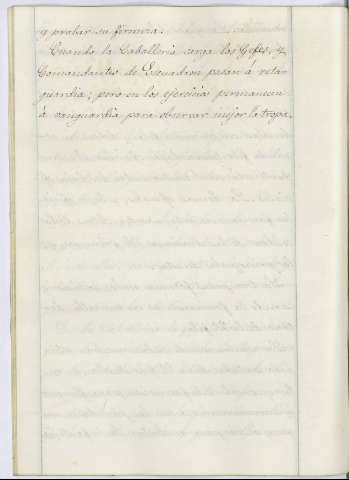 y probar su firmeza.
Cuando la Caballeria carga los Gefes, y
Comandantes de Escuadron pasan á retar
guardia; pero en los ejercicios permanecen
á vanguardia para observar mejor la tropa.